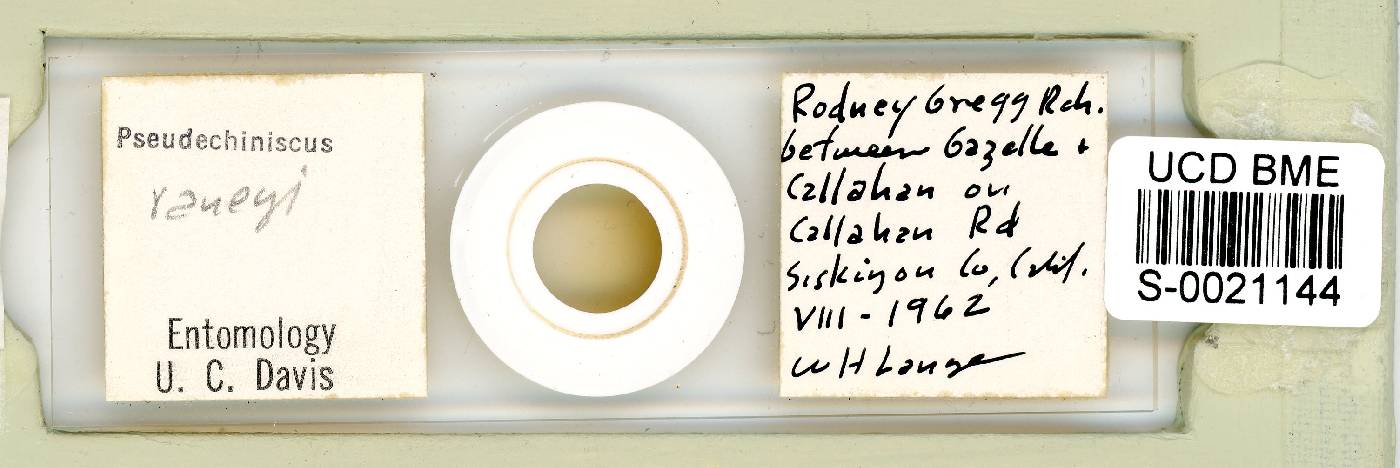 Pseudechiniscus
raneyi
Entomology
U. C. Davis
Rodney Gregg Rch.
between Gazelle +
Callahan on
Callahan Rd
Siskiyou Co, Calif.
VIII - 1962
W H Lange
UCD BME
S-0021144